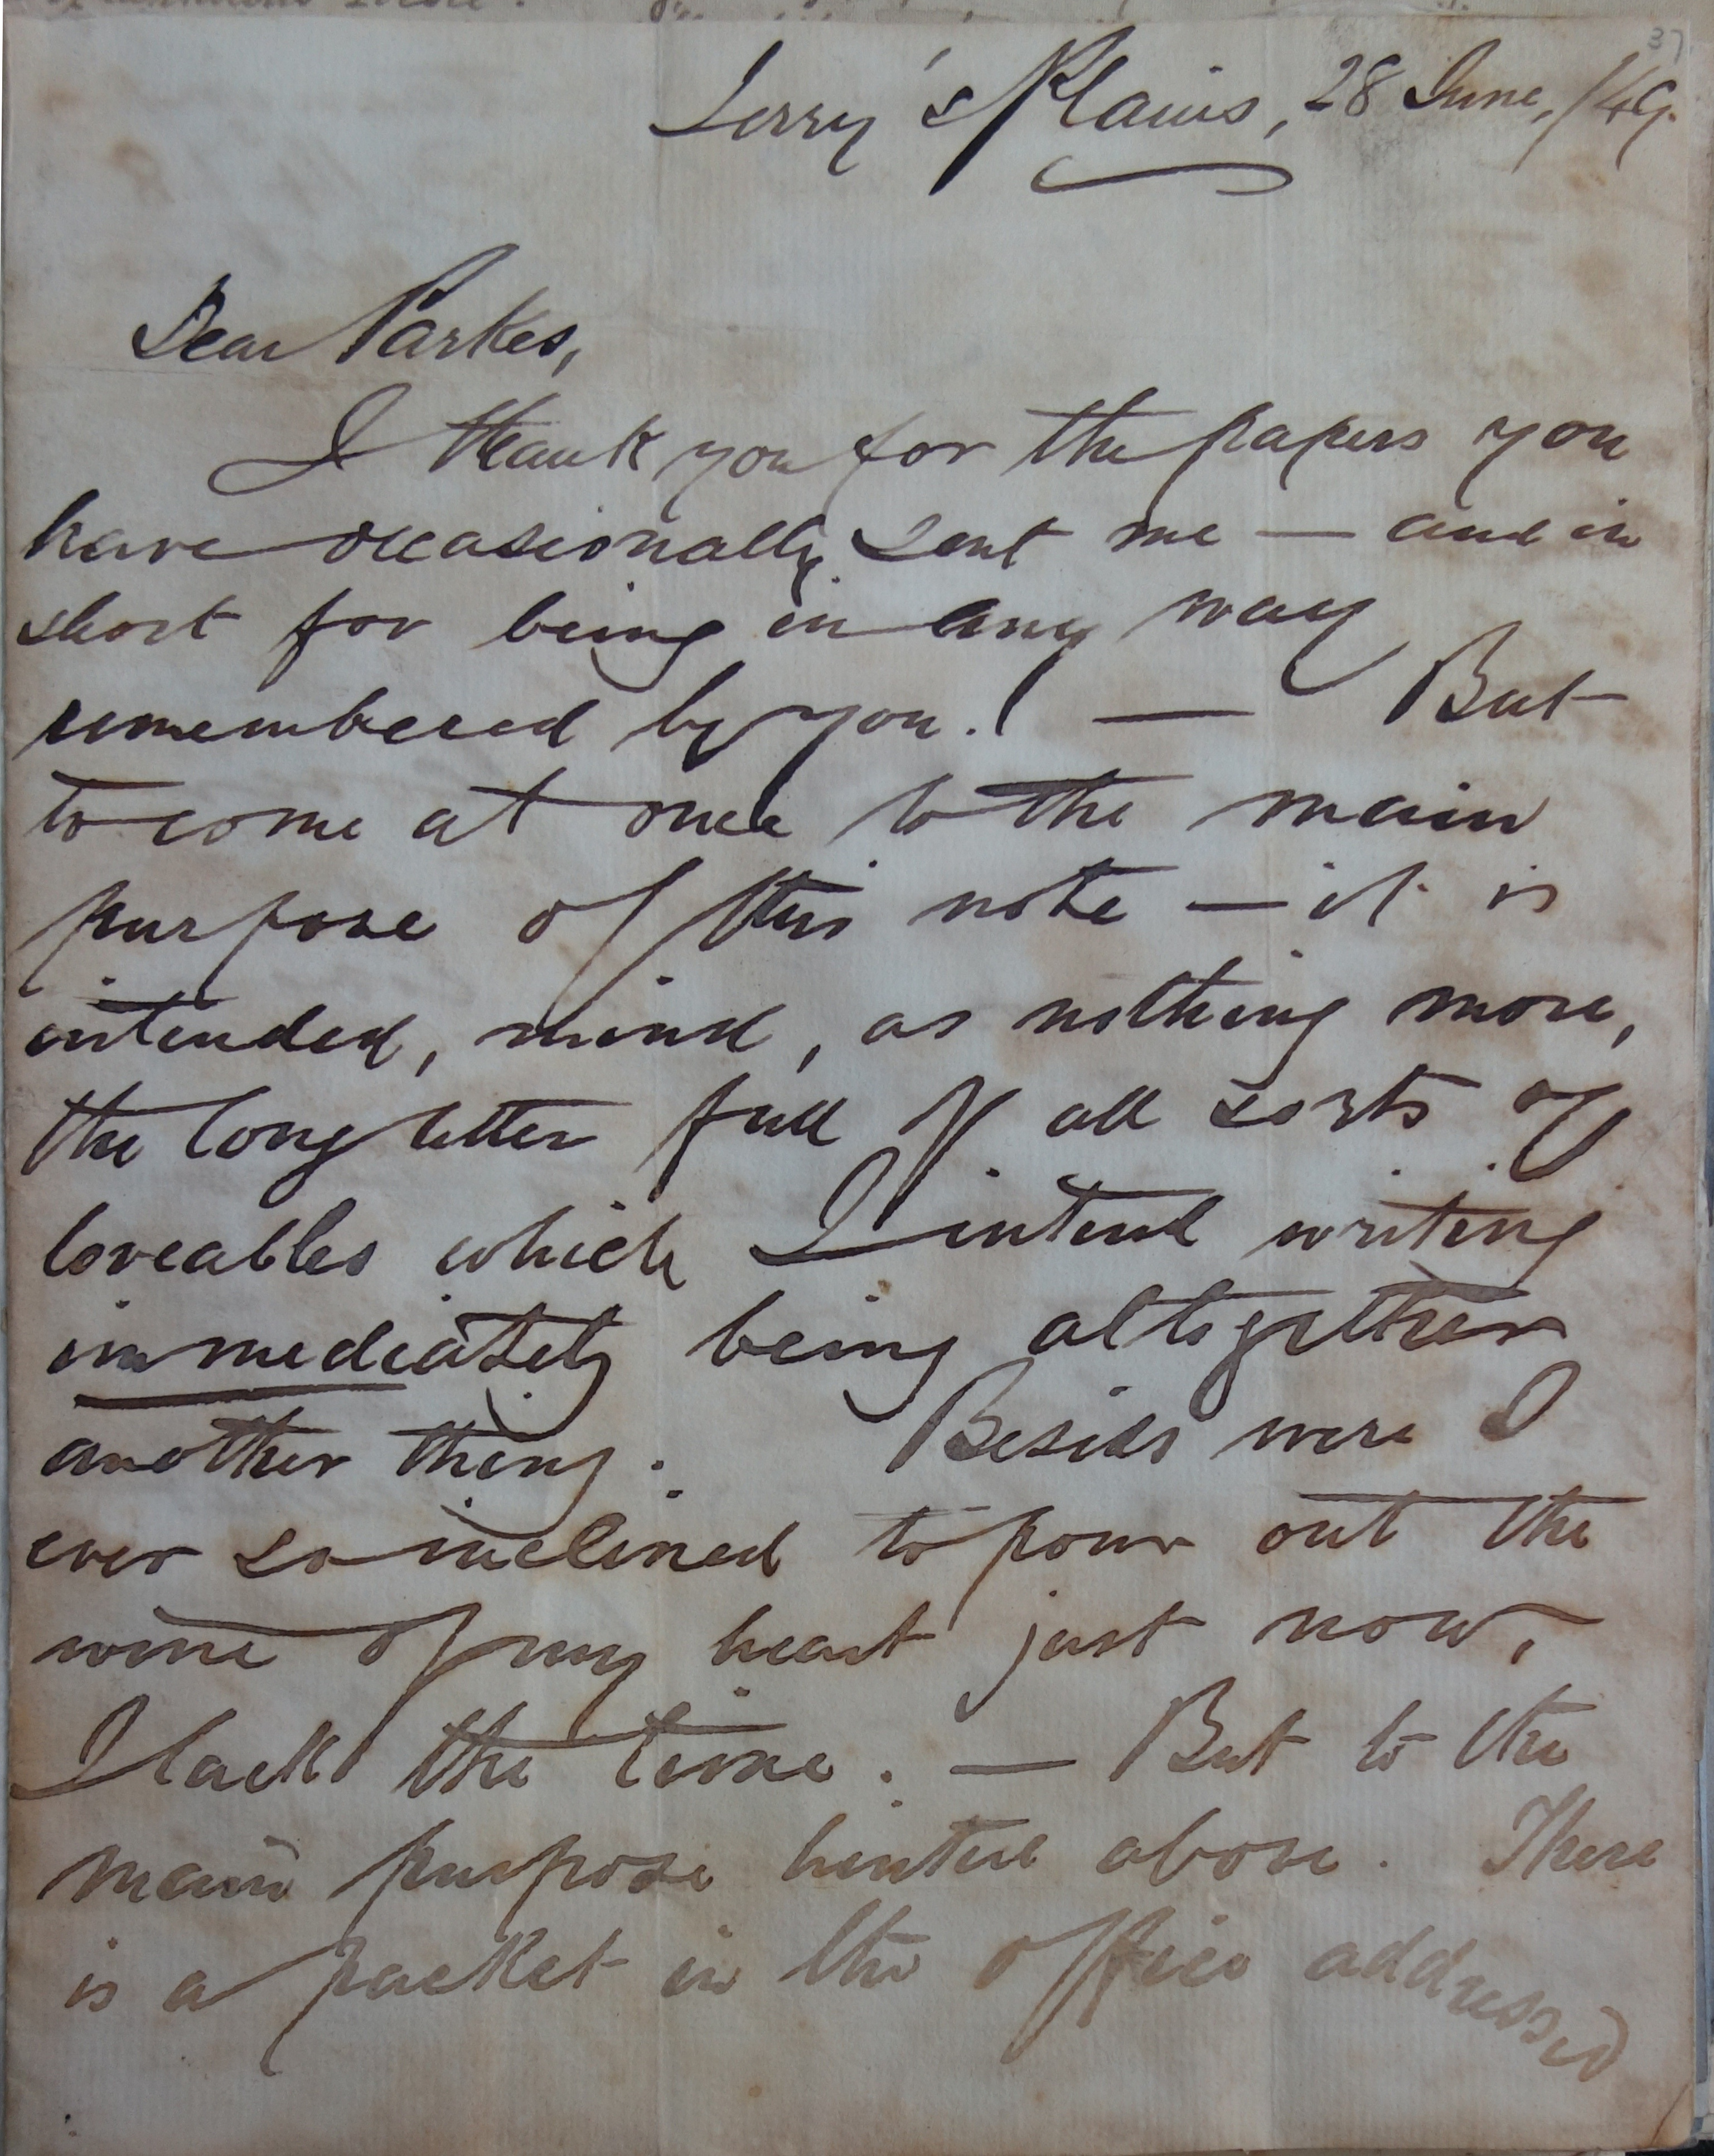 37
Jerry's Plains, 28 June, /49.
Dear Parkes,
I thank you for the papers you
have occasionally sent me — and in
short for being in any way
remembered by you.! — But
to come at once to the main
purpose of this note — it is
intended, mind, as nothing more,
the long letter full of all sorts of
loveables which I intend writing
immediately being altogether
another thing. Besides were I
ever so inclined to pour out the
wine of my heart just now,
I lack the time. — But to the
main purpose hinted above. There
is a packet in the office addressed